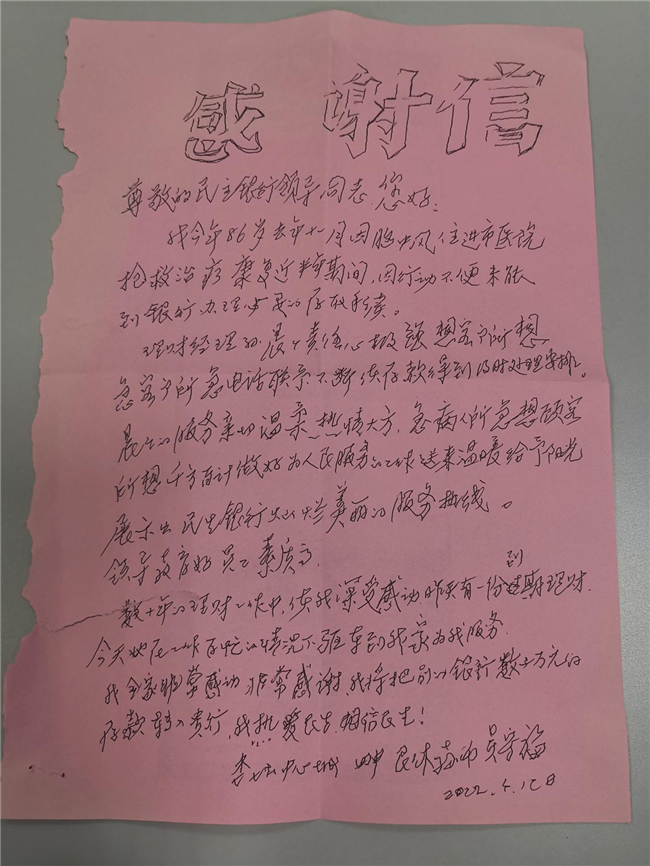 感谢信
尊敬的民生银行领导同志您好:
我今年86岁去年十一月因脑中风住进市医院
抢救治疗康复近半年期间,因行动不便未能
到银行办理必要的存取手续。
理财经理 晨 责任心极强想客户所想
急客户所急电话联系不断使存款得到及时处理安排。
晨 的服务亲切温柔热情大方,急病人所急想顾客
所想千方百计做好为人民服务的工作送来温暖给予阳光
展示出民生银行灿烂美丽的服务热线。
领导教育好员工素质高
数十年的理财工作中,使我深受感动昨天有一份到期理财.
今天她在工作百忙的情况下驱车到我家为我服务.
我全家非常感动非常感谢,我将把别的银行数十万元的
存款转入贵行,我热爱民生相信民生!
中心 退休
2022.4.12日